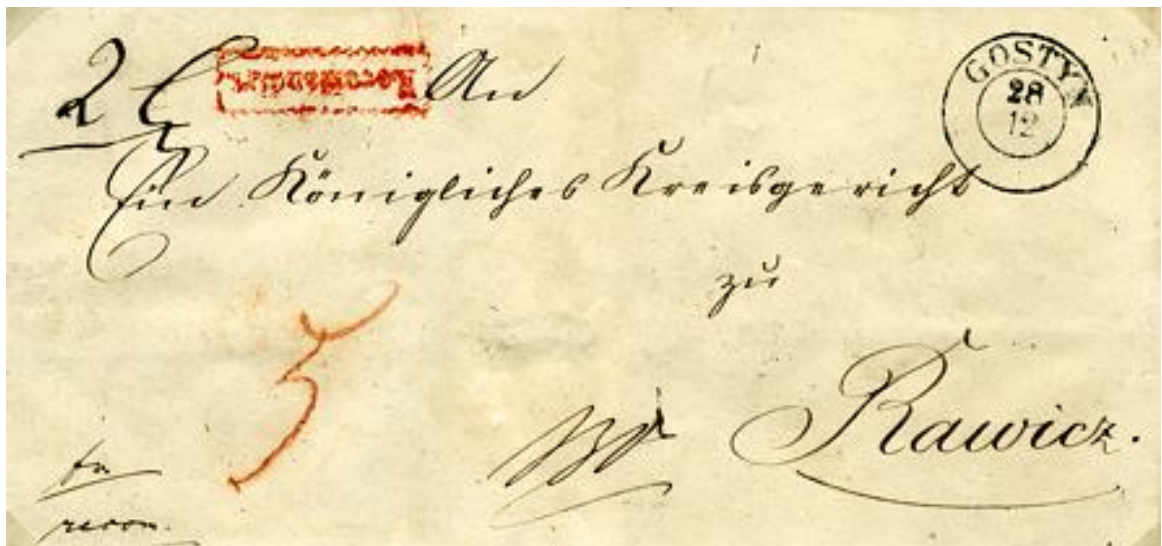 An
GOSTYN
28
12
Ein Königliches Kreisgericht
zu
Rawicz.
fr.
recom.